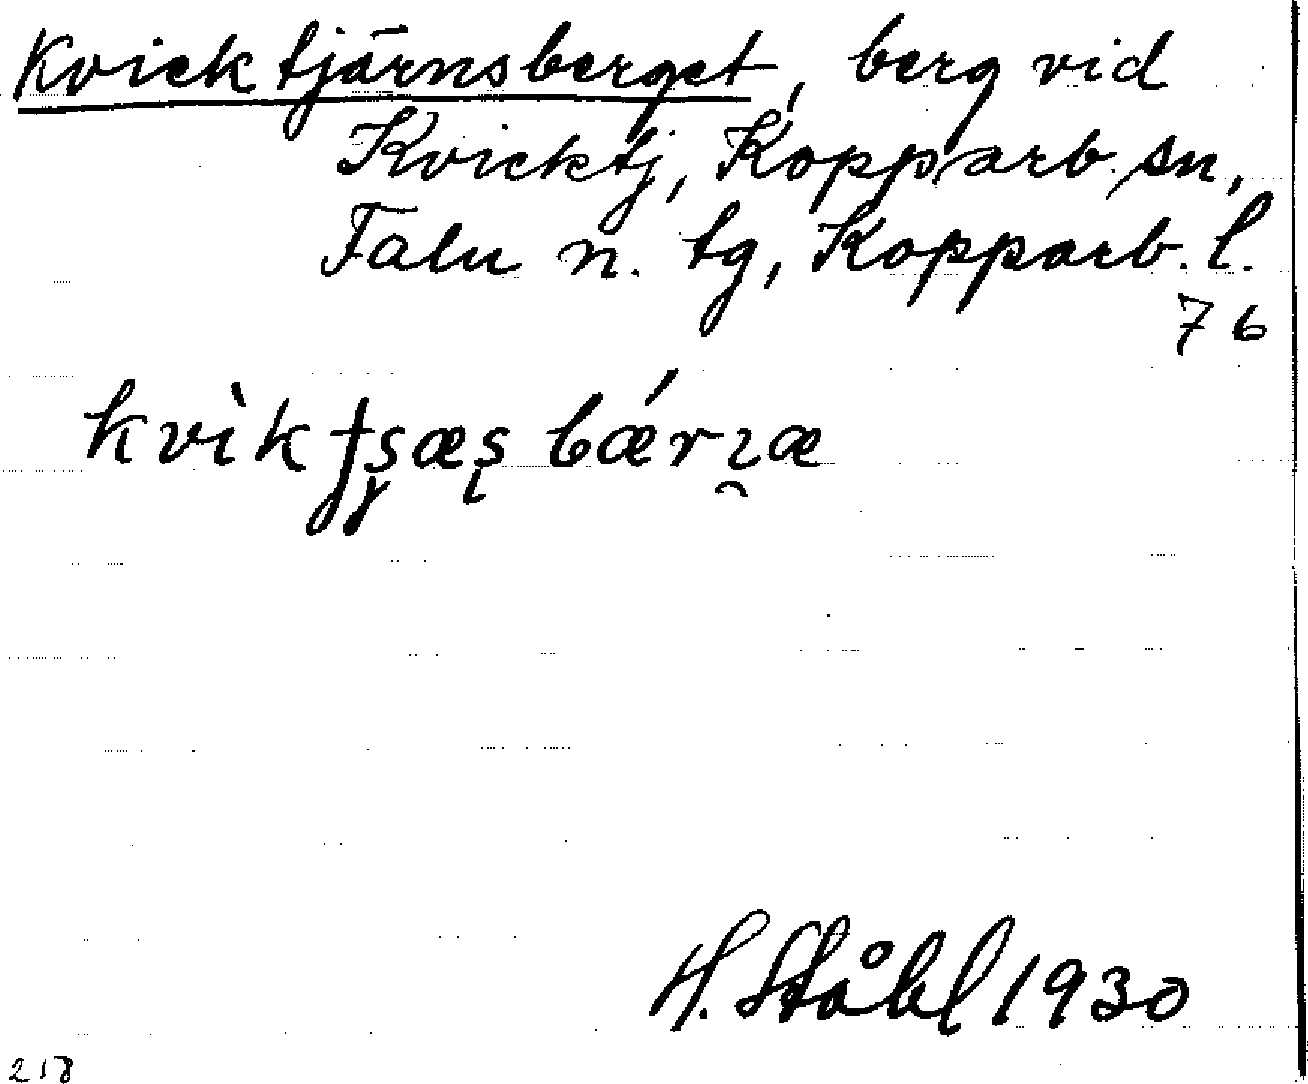 Kvicktjärnsberget, berg vid
Kvicktj, Kopparb. sn,
Falu n. tg, Kopparb. l.
76
H. Ståhl 1930
218